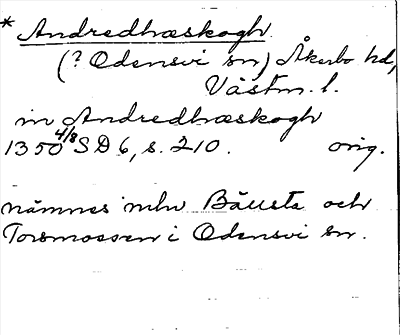 * Andredhæskogh
(? Odensvi sn) Åkerbo hd,
Västm. l.
in Andredhæskogh
1350 4/8 SD 6, s. 210. orig.
nämnes mln Bäusta och
Torsmossen i Odensvi sn.